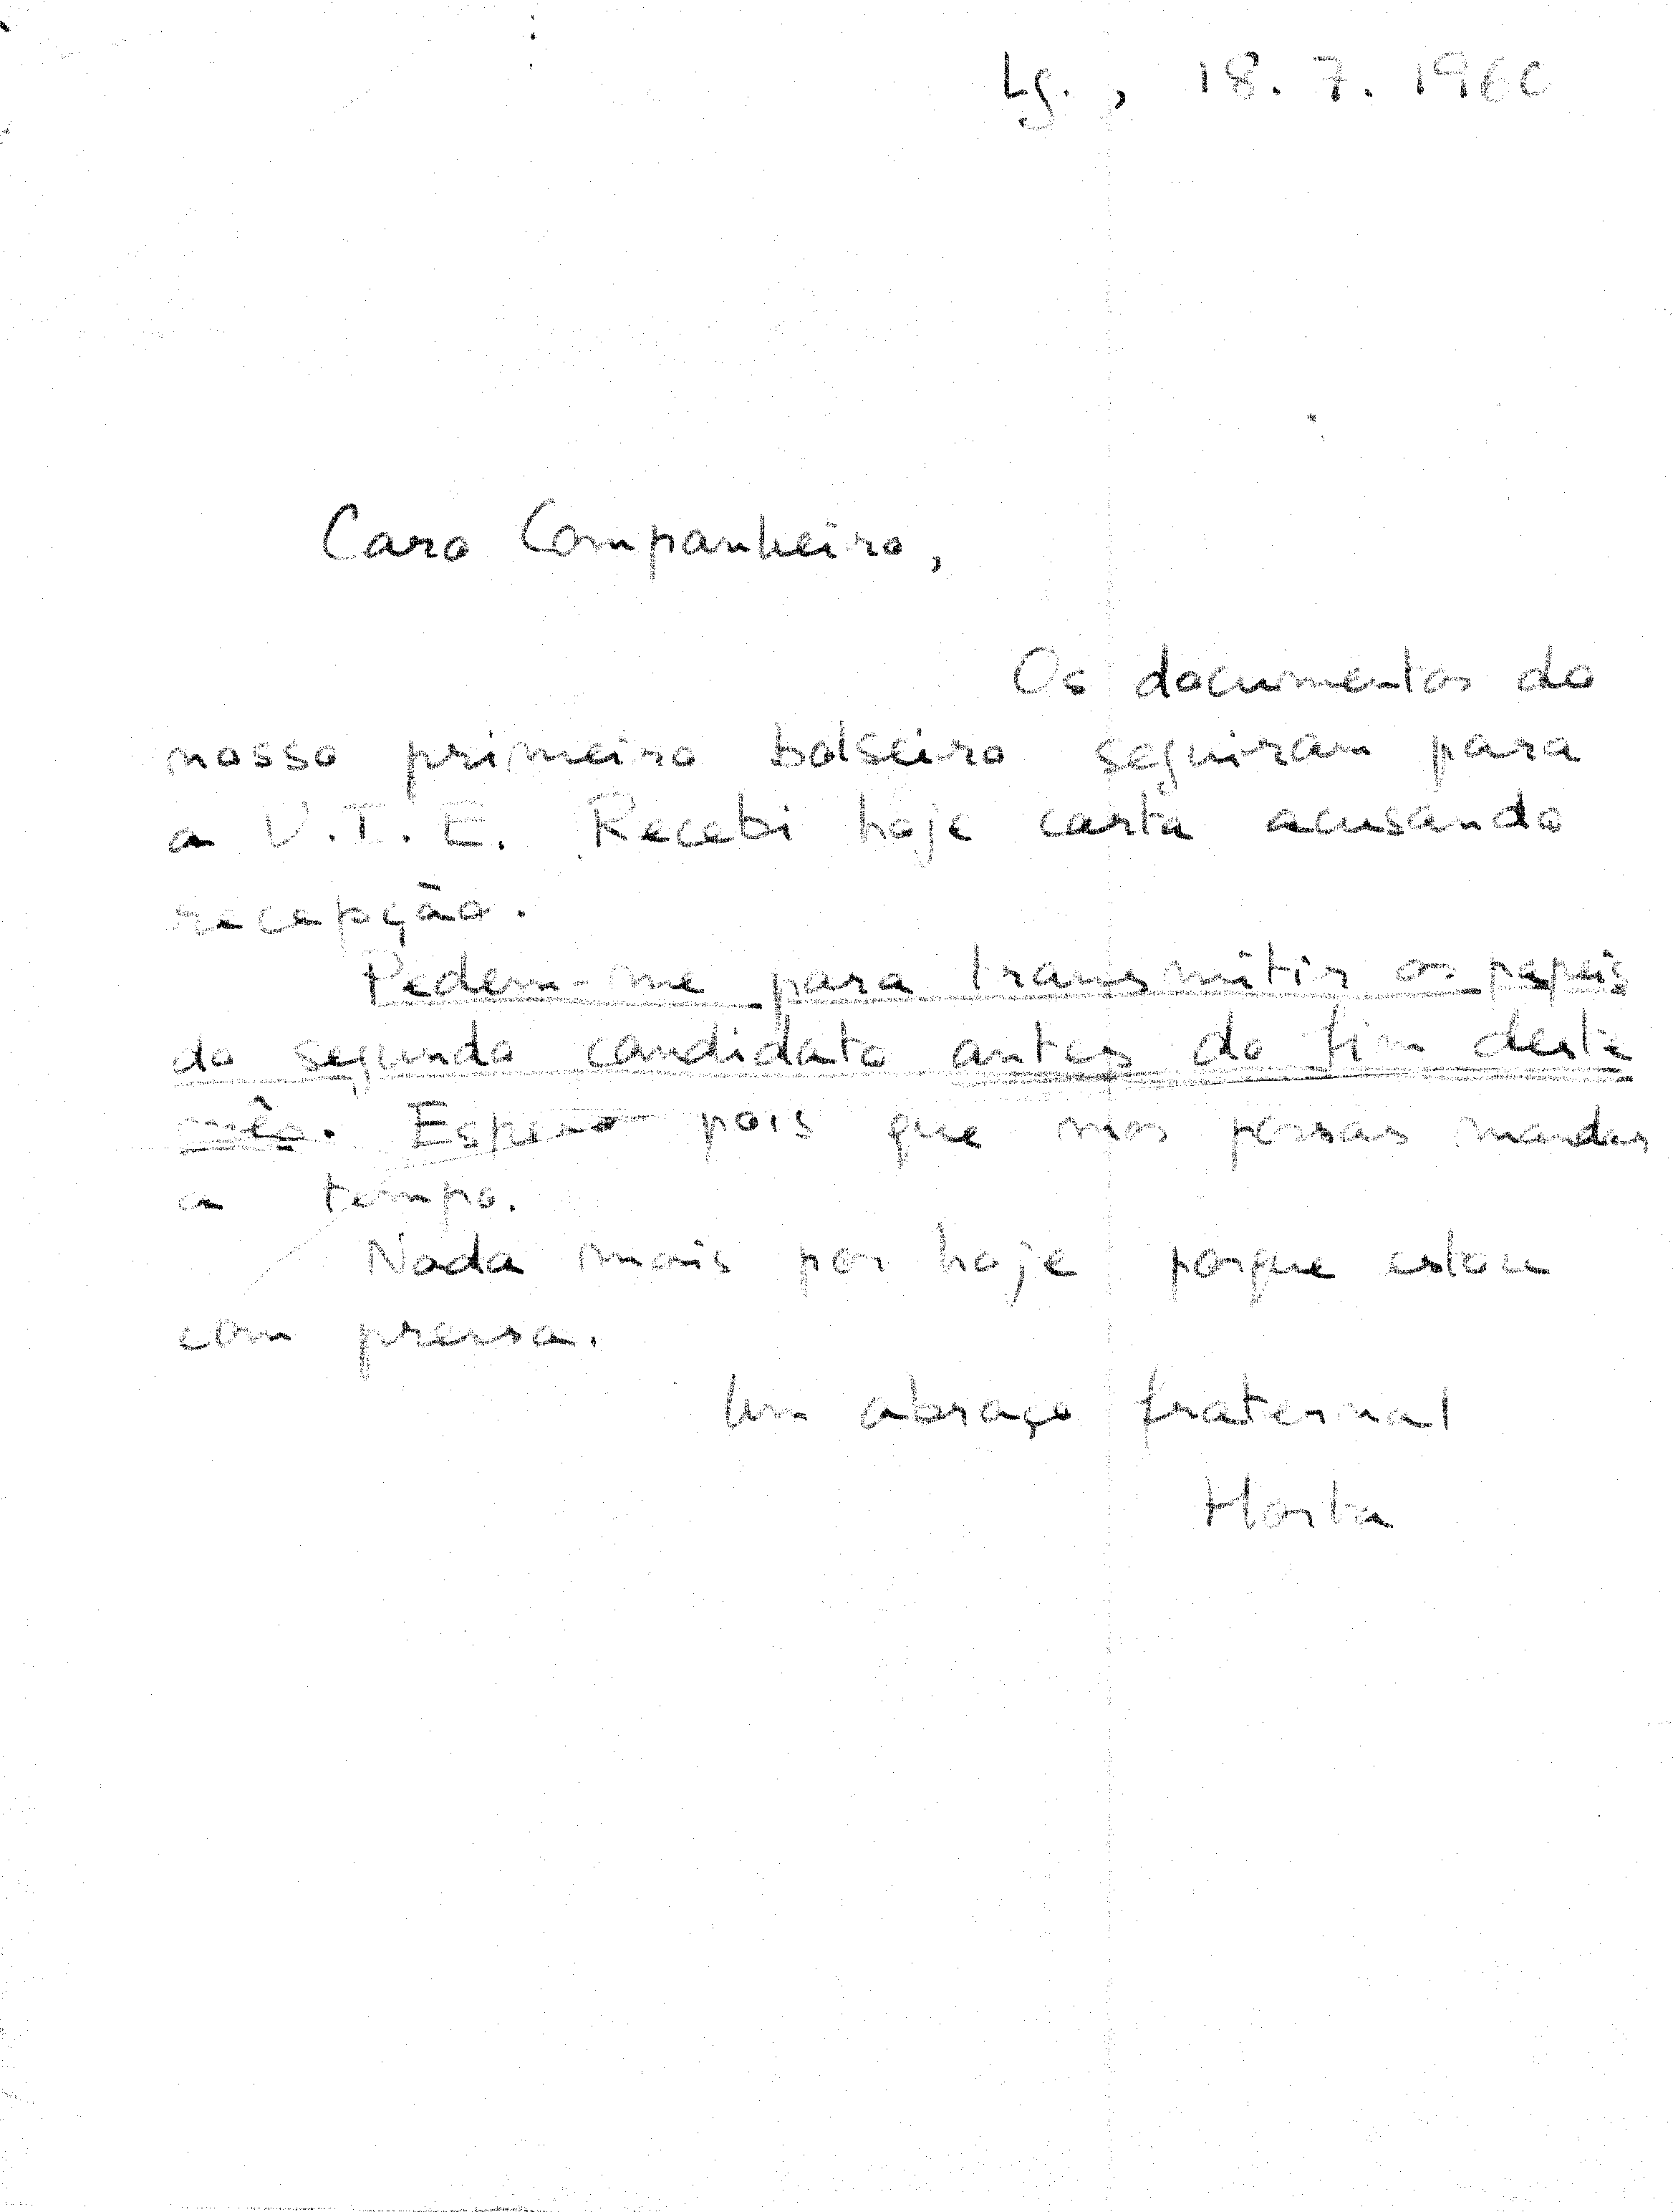 Lg., 18.7.1960
Caro Companheiro,
Os documentos do
nosso primeiro bolseiro seguiram para
a U.I.E. Recebi hoje carta acusando
recepção.
Pedem-me para transmitir os papeis
do segundo candidato antes do fim deste
mês. Espero pois que nos possas mandar
a tempo.
Nada mais por hoje porque estou
com pressa.
Um abraço fraternal
Horta